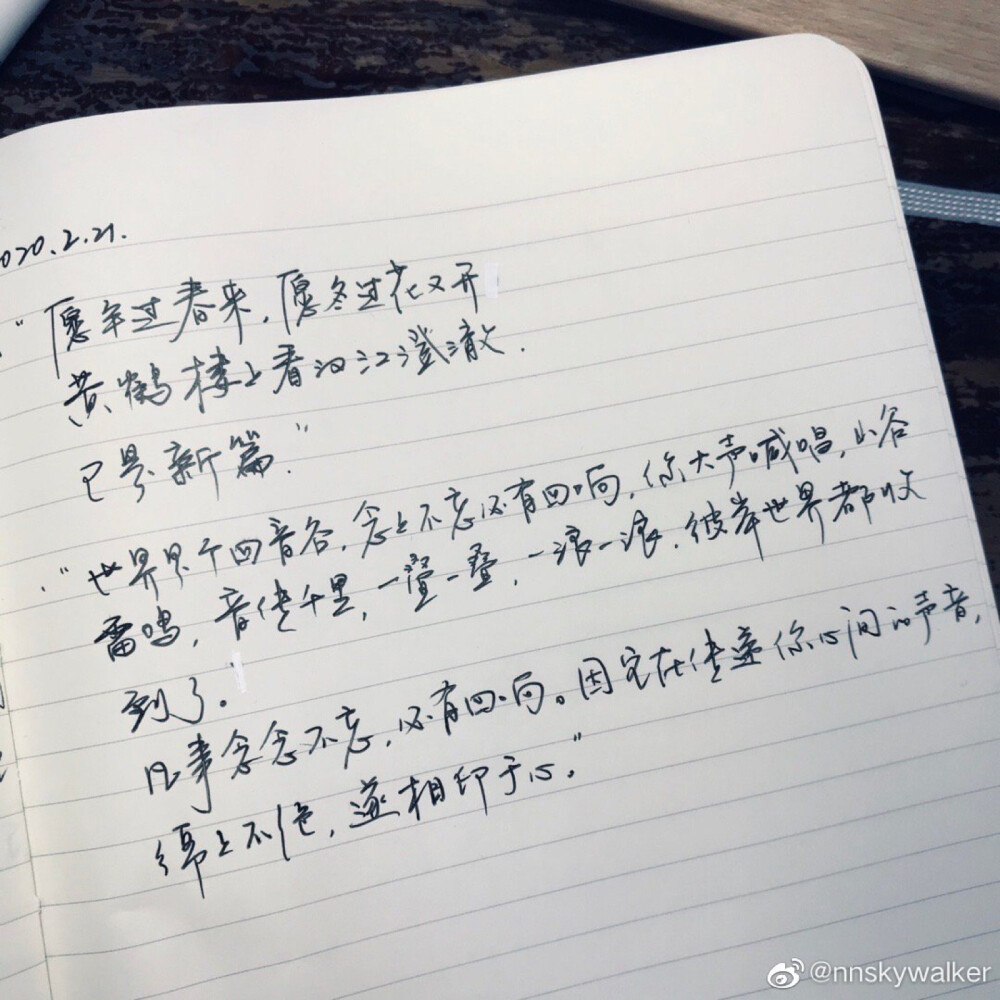 2020.2.21.
"愿年过春来，愿冬过花又开
黄鹤楼上看汉江澄澈.
已是新篇."
"世界是个回音谷，念念不忘必有回响，你大声喊唱，山谷
雷鸣，音传千里，一叠一叠，一浪一浪，彼岸世界都收
到了。
凡事念念不忘，必有回响。因它在传递你心间的声音，
绵绵不绝，遂相印于心。"
@nnskywalker